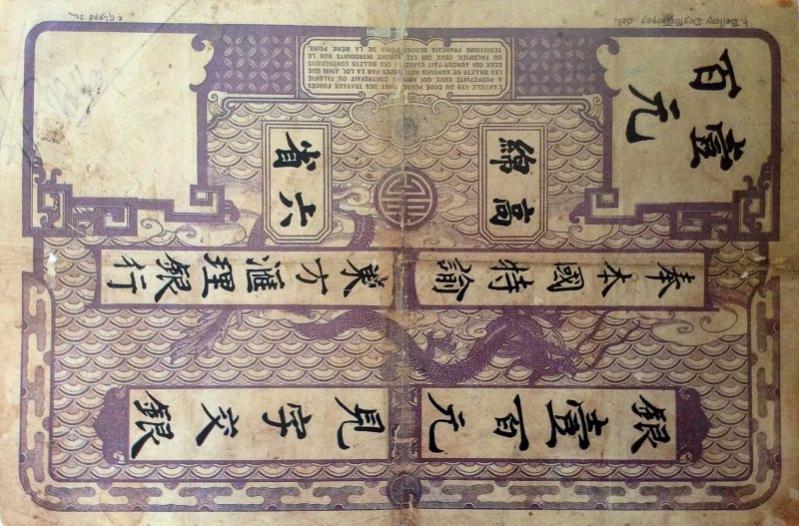 銀壹百元
見字交銀
奉本國特諭
東方滙理銀行
高綿
六省
壹百元
L'ARTICLE 139 DU CODE PENAL PUNIT DES TRAVAUX FORCÉS
A PERPETUITE CEUX QUI AYANT CONTREFAIT OU FALSIFIÉ
LES BILLETS DE BANQUES AUTORISÉES PAR LA LOI, AINSI QUE
CEUX QUI AURONT FAIT USAGE DE CES BILLETS CONTREFAITS
OU FALSIFIÉS. CEUX QUI LES AURONT INTRODUITS SUR LE
TERRITOIRE FRANÇAIS SERONT PUNIS DE LA MÊME PEINE.